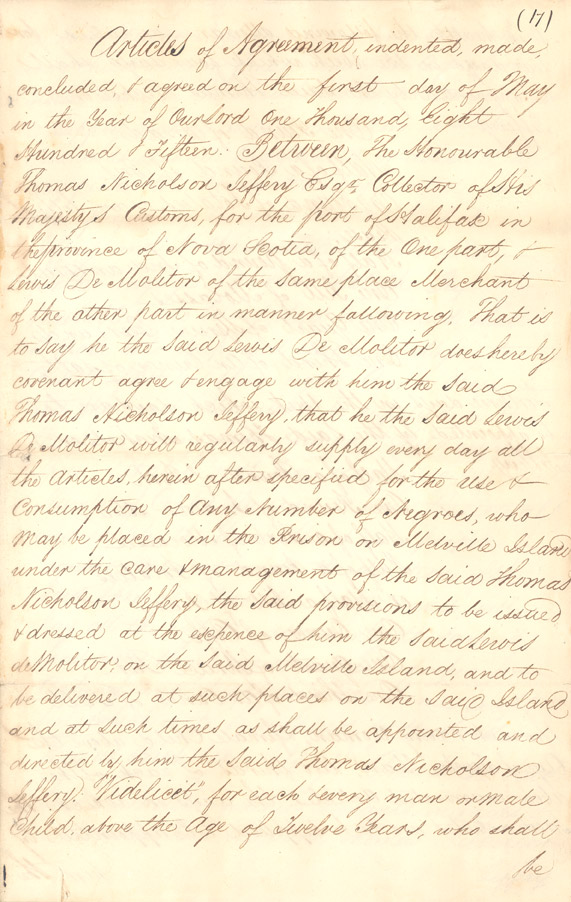 (17)
Articles of Agreement, indented, made,
concluded, & agreed on the first day of May
in the Year of Our Lord One Thousand, Eight
Hundred & Fifteen. Between, The Honourable
Thomas Nicholson Jeffery Esqr. Collector of His
Majesty's Customs, for the port of Halifax in
the province of Nova Scotia, of the One part, &
Lewis De Molitor of the same place Merchant
of the other part in manner following, That is
to say he the said Lewis De Molitor does hereby
covenant agree & engage with him the said
Thomas Nicholson Jeffery, that he the said Lewis
De Molitor will regularly supply every day all
the Articles, herein after specified for the use &
Consumption of any Number of Negroes, who
may be placed in the Prison on Melville Island
under the care & management of the said Thomas
Nicholson Jeffery, the said provisions to be issued
& dressed at the expence of him the said Lewis
de Molitor, on the said Melville Island, and to
be delivered at such places on the said Island
and at such times as shall be appointed and
directed by him the said Thomas Nicholson
Jeffery. "Videlicet", for each & every man or male
Child, above the Age of Twelve Years, who shall
be